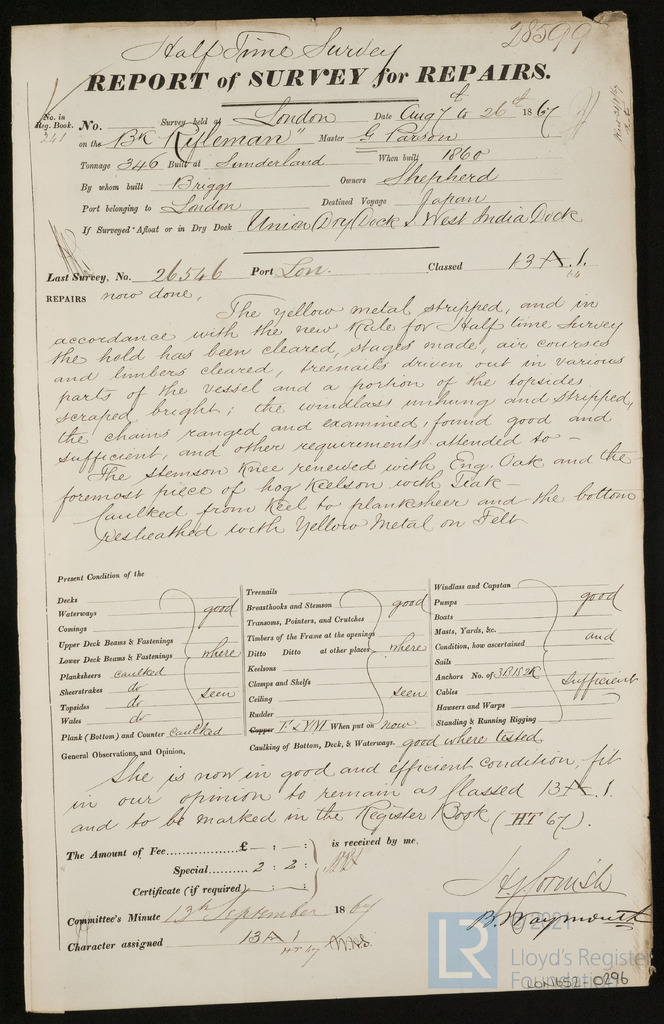 Half Time Survey
28599
REPORT of SURVEY for REPAIRS.
No. in Reg. Book. 341
No. Survey held at London Date Aug 7th to 26th 1867
on the Bk "Rifleman" Master G Parson
Tonnage 346 Built at Sunderland When built 1860
By whom built Briggs Owners Shepherd
Port belonging to London Destined Voyage Japan
If Surveyed Afloat or in Dry Dock Union Dry Dock & West India Dock
Last Survey, No. 26546 Port Lon. Classed 13 A.1.
REPAIRS now done,
The yellow metal stripped, and in
accordance with the new Rule for Half time Survey
the hold has been cleared, stages made, air courses
and limbers cleared, treenails driven out in various
parts of the vessel and a portion of the topsides
scraped bright; the windlass unhung and stripped,
the chains ranged and examined, found good and
sufficient, and other requirements attended to —
The Stemson Knee renewed with Eng. Oak and the
foremost piece of hog Keelson with Teak —
Caulked from Keel to planksheer and the bottom
resheathed with Yellow Metal on Felt
Present Condition of the
Decks
Waterways
Comings
good
Upper Deck Beams & Fastenings
Lower Deck Beams & Fastenings
where
Planksheers caulked
Sheerstrakes do
Topsides do
Wales do
seen
Plank (Bottom) and Counter Caulked
Treenails
Breasthooks and Stemson
Transoms, Pointers, and Crutches
good
Timbers of the Frame at the openings
Ditto Ditto at other places
where
Keelsons
Clamps and Shelfs
Ceiling
seen
Rudder
Copper F & YM When put on now
Caulking of Bottom, Deck, & Waterways good where tested
Windlass and Capstan
Pumps
good
Boats
Masts, Yards, &c.
Condition, how ascertained
and
Sails
Anchors No. of 3B 1S 2K
Cables
sufficient
Hawsers and Warps
Standing & Running Rigging
General Observations, and Opinion,
She is now in good and efficient condition, fit
in our opinion to remain as Classed 13 A.1.
and to be marked in the Register Book (HT 67).
The Amount of Fee £ — : — : — is received by me,
Special 2 : 2 :
Certificate (if required) — : — :
Committee's Minute 13th September 1867
Character assigned 13 A 1
HT 67
H J Cornish
B. Waymouth
© 2021
LR
Lloyd's Register
Foundation
LON652-0296